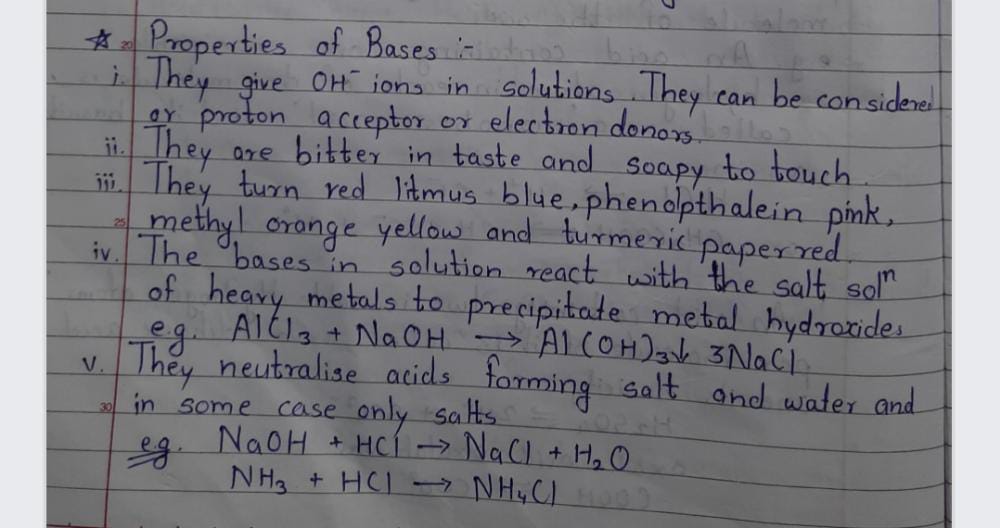 ☆ 20 Properties of Bases :-
i. They give OH⁻ ions in solutions. They can be considered
or proton acceptor or electron donors.
ii. They are bitter in taste and soapy to touch.
iii. They turn red litmus blue, phenolpthalein pink,
25 methyl orange yellow and turmeric paper red.
iv. The bases in solution react with the salt solⁿ
of heavy metals to precipitate metal hydroxides
e.g. AlCl₃ + NaOH → Al(OH)₃↓ 3NaCl
v. They neutralise acids forming salt and water and
30 in some case only salts
e.g. NaOH + HCl → NaCl + H₂O
NH₃ + HCl → NH₄Cl